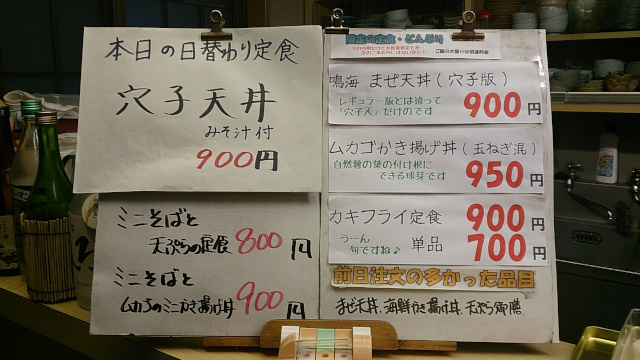 本日の日替わり定食
穴子天丼
みそ汁付
900円
ミニそばと
天ぷらの定食 800円
ミニそばと
ムカゴのミニかき揚げ丼 900円
限定の定食・どんぶり
ご飯の大盛りは別途料金
鳴海 まぜ天丼(穴子版)
レギュラー版とは違って
「穴子天」だけのです
900円
ムカゴかき揚げ丼(玉ねぎ混)
自然薯の葉の付け根に
できる球芽です
950円
カキフライ定食 900円
うーん
旬ですね♪
単品 700円
前日注文の多かった品目
まぜ天丼、海鮮かき揚げ丼、天ぷら御膳